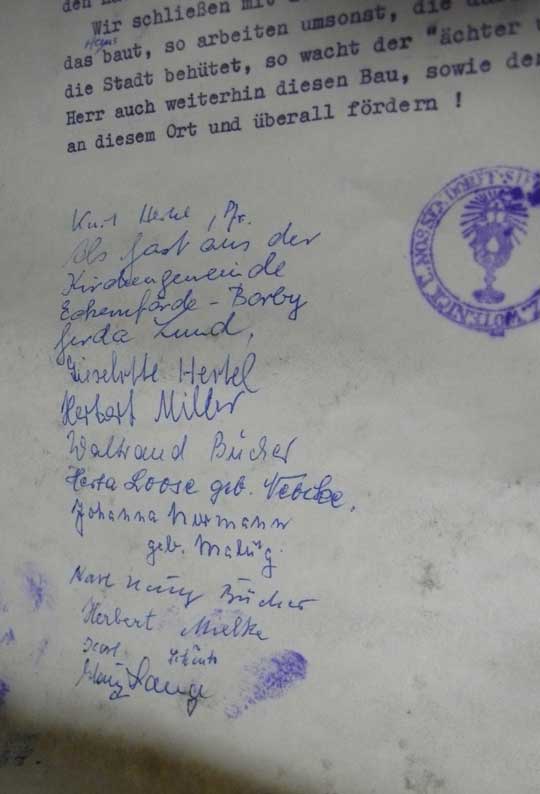 den
Wir schließen mit
Haus
das baut, so arbeiten umsonst, die
die Stadt behütet, so wacht der "ächter
Herr auch weiterhin diesen Bau, sowie
an diesem Ort und überall fördern !
Kurt Hertel, Pfr.
Als Gast aus der
Kirchengemeinde
Eckernförde - Borby
Gerda Lund,
Lieselotte Hertel
Herbert Miller
Waltraud Bücher
Herta Loose geb.
Johanna Neumann
geb.
Bücher
Herbert Mielke
Lange